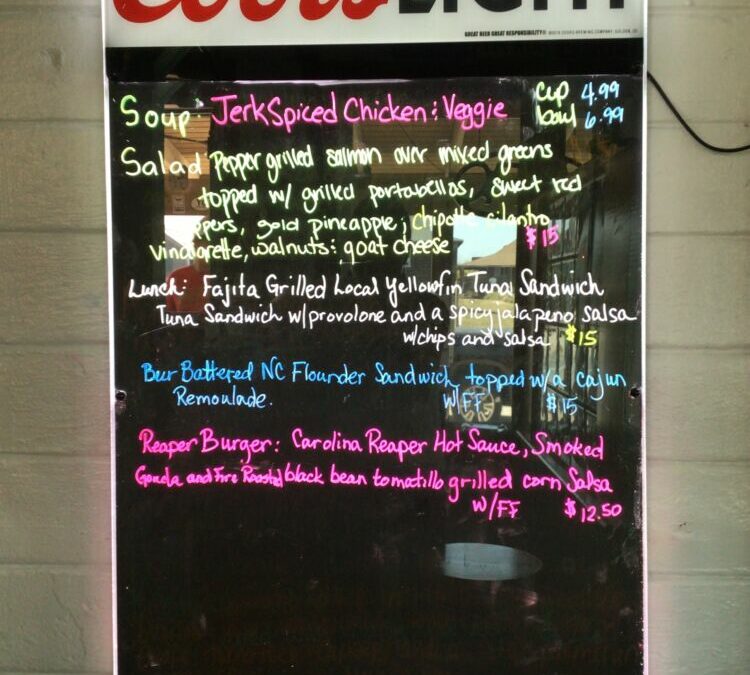 Coors LIGHT
GREAT BEER GREAT RESPONSIBILITY®
Soup: Jerk Spiced Chicken : Veggie cup 4.99
bowl 6.99
Salad Pepper grilled salmon over mixed greens
topped w/ grilled portabellas, sweet red
ppers, gold pineapple, chipotle cilantro
vinaigrette, walnuts : goat cheese $15
Lunch: Fajita Grilled Local Yellowfin Tuna Sandwich
Tuna Sandwich w/provolone and a spicy jalapeno salsa
w/chips and salsa $15
Beer Battered NC Flounder Sandwich topped w/a cajun
Remoulade. w/FF $15
Reaper Burger: Carolina Reaper Hot Sauce, Smoked
Gouda and Fire Roasted black bean tomatillo grilled corn Salsa
w/FF $12.50